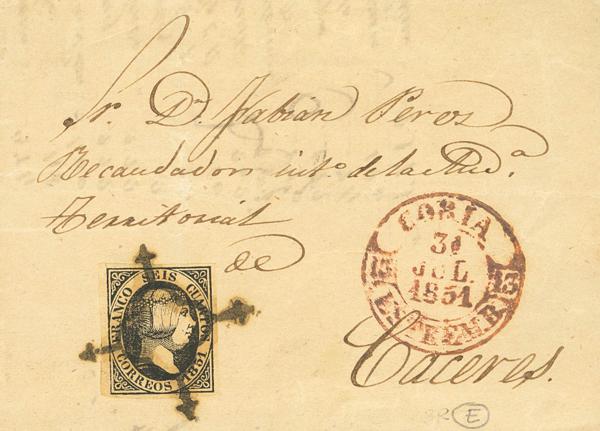 Sr. Dn. Fabián Peros
Recaudador int.o de la
Territorial
de
Caceres.
FRANCO SEIS CUARTOS
CORREOS 1851
CORIA
31
JUL
1851
13 13
EXTREM.B.
E